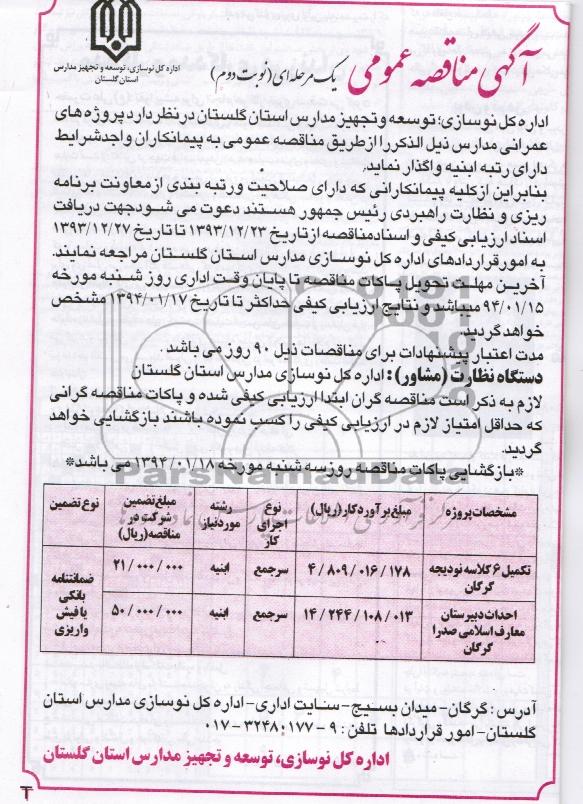 آگهی مناقصه عمومی یک مرحله ای (نوبت دوم)
اداره کل نوسازی، توسعه و تجهیز مدارس
استان گلستان
اداره کل نوسازی؛ توسعه و تجهیز مدارس استان گلستان در نظر دارد پروژه های
عمرانی مدارس ذیل الذکر را از طریق مناقصه عمومی به پیمانکاران واجد شرایط
دارای رتبه ابنیه واگذار نماید.
بنابراین از کلیه پیمانکارانی که دارای صلاحیت و رتبه بندی از معاونت برنامه
ریزی و نظارت راهبردی رئیس جمهور هستند دعوت می شود جهت دریافت
اسناد ارزیابی کیفی و اسناد مناقصه از تاریخ ۱۳۹۳/۱۲/۲۳ تا تاریخ ۱۳۹۳/۱۲/۲۷
به امور قراردادهای اداره کل نوسازی مدارس استان گلستان مراجعه نمایند.
آخرین مهلت تحویل پاکات مناقصه تا پایان وقت اداری روز شنبه مورخه
۹۴/۰۱/۱۵ میباشد و نتایج ارزیابی کیفی حداکثر تا تاریخ ۱۳۹۴/۰۱/۱۷ مشخص
خواهد گردید.
مدت اعتبار پیشنهادات برای مناقصات ذیل ۹۰ روز می باشد.
دستگاه نظارت (مشاور): اداره کل نوسازی مدارس استان گلستان
لازم به ذکر است مناقصه گران ابتدا ارزیابی کیفی شده و پاکات مناقصه گرانی
که حداقل امتیاز لازم در ارزیابی کیفی را کسب نموده باشند بازگشایی خواهد
گردید.
*بازگشایی پاکات مناقصه روز سه شنبه مورخه ۱۳۹۴/۰۱/۱۸ می باشد*
ParsNamadData
مشخصات پروژه | مبلغ برآورد کار (ریال) | نوع اجرای کار | رشته مورد نیاز | مبلغ تضمین شرکت در مناقصه (ریال) | نوع تضمین
تکمیل ۶ کلاسه نودیجه گرگان | ۴/۸۰۹/۰۱۶/۱۷۸ | سرجمع | ابنیه | ۲۱/۰۰۰/۰۰۰ | ضمانتنامه بانکی یا فیش واریزی
احداث دبیرستان معارف اسلامی صدرا گرگان | ۱۴/۲۴۴/۱۰۸/۰۱۳ | سرجمع | ابنیه | ۵۰/۰۰۰/۰۰۰
آدرس: گرگان-میدان بسیج-سایت اداری-اداره کل نوسازی مدارس استان
گلستان-امور قراردادها تلفن: ۹-۳۲۴۸۰۱۷۷-۰۱۷
اداره کل نوسازی، توسعه و تجهیز مدارس استان گلستان